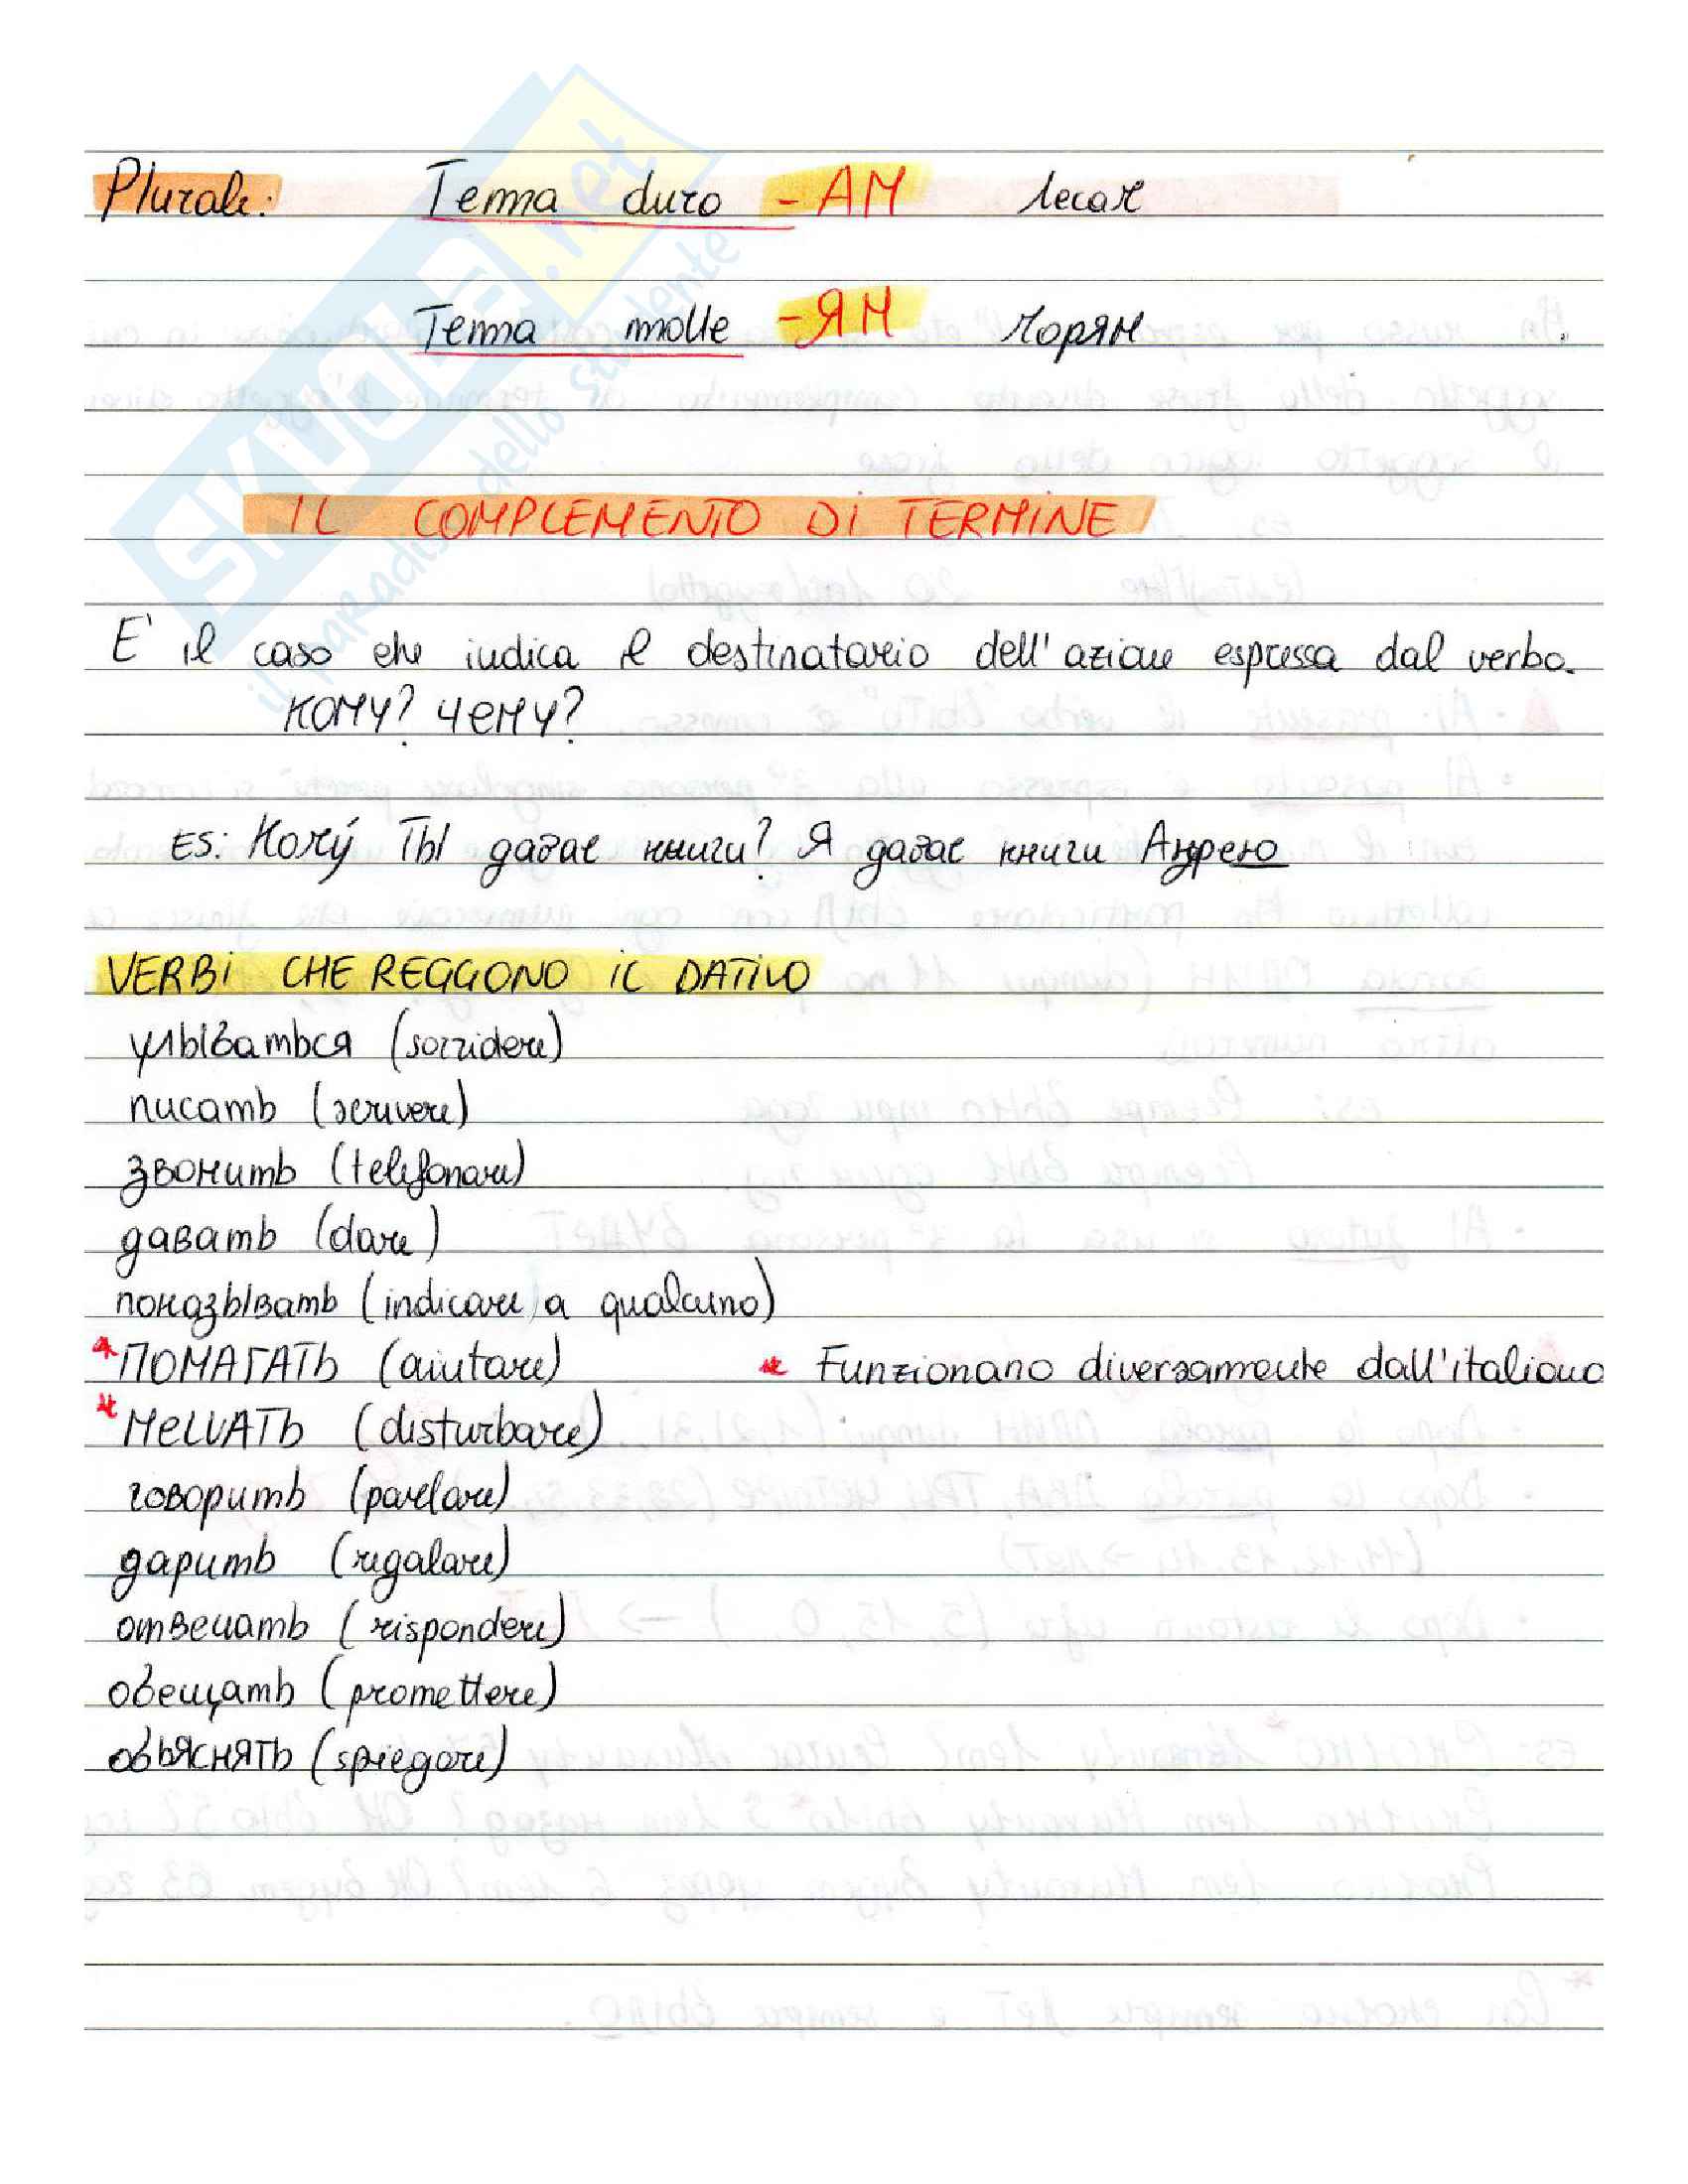 Plurale: Tema duro -АМ лесам
Tema molle -ЯМ морям
IL COMPLEMENTO Di TERMiNE
E' il caso che indica il destinatario dell'azione espressa dal verbo.
КОМУ? ЧЕМУ?
ES: Кому́ ТЫ даёае книги? Я даёае книги Андрею
VERBi CHE REGGONO iL DATIVO
улыбаться (sorridere)
писать (scrivere)
звонить (telefonare)
давать (dare)
показывать (indicare a qualcuno)
*ПОМАГАТЬ (aiutare) * Funzionano diversamente dall'italiano
*МеШАТЬ (disturbare)
говорить (parlare)
дарить (regalare)
отвечать (rispondere)
обещать (promettere)
объяснять (spiegare)
SKUOLA.net
il paradiso dello studente